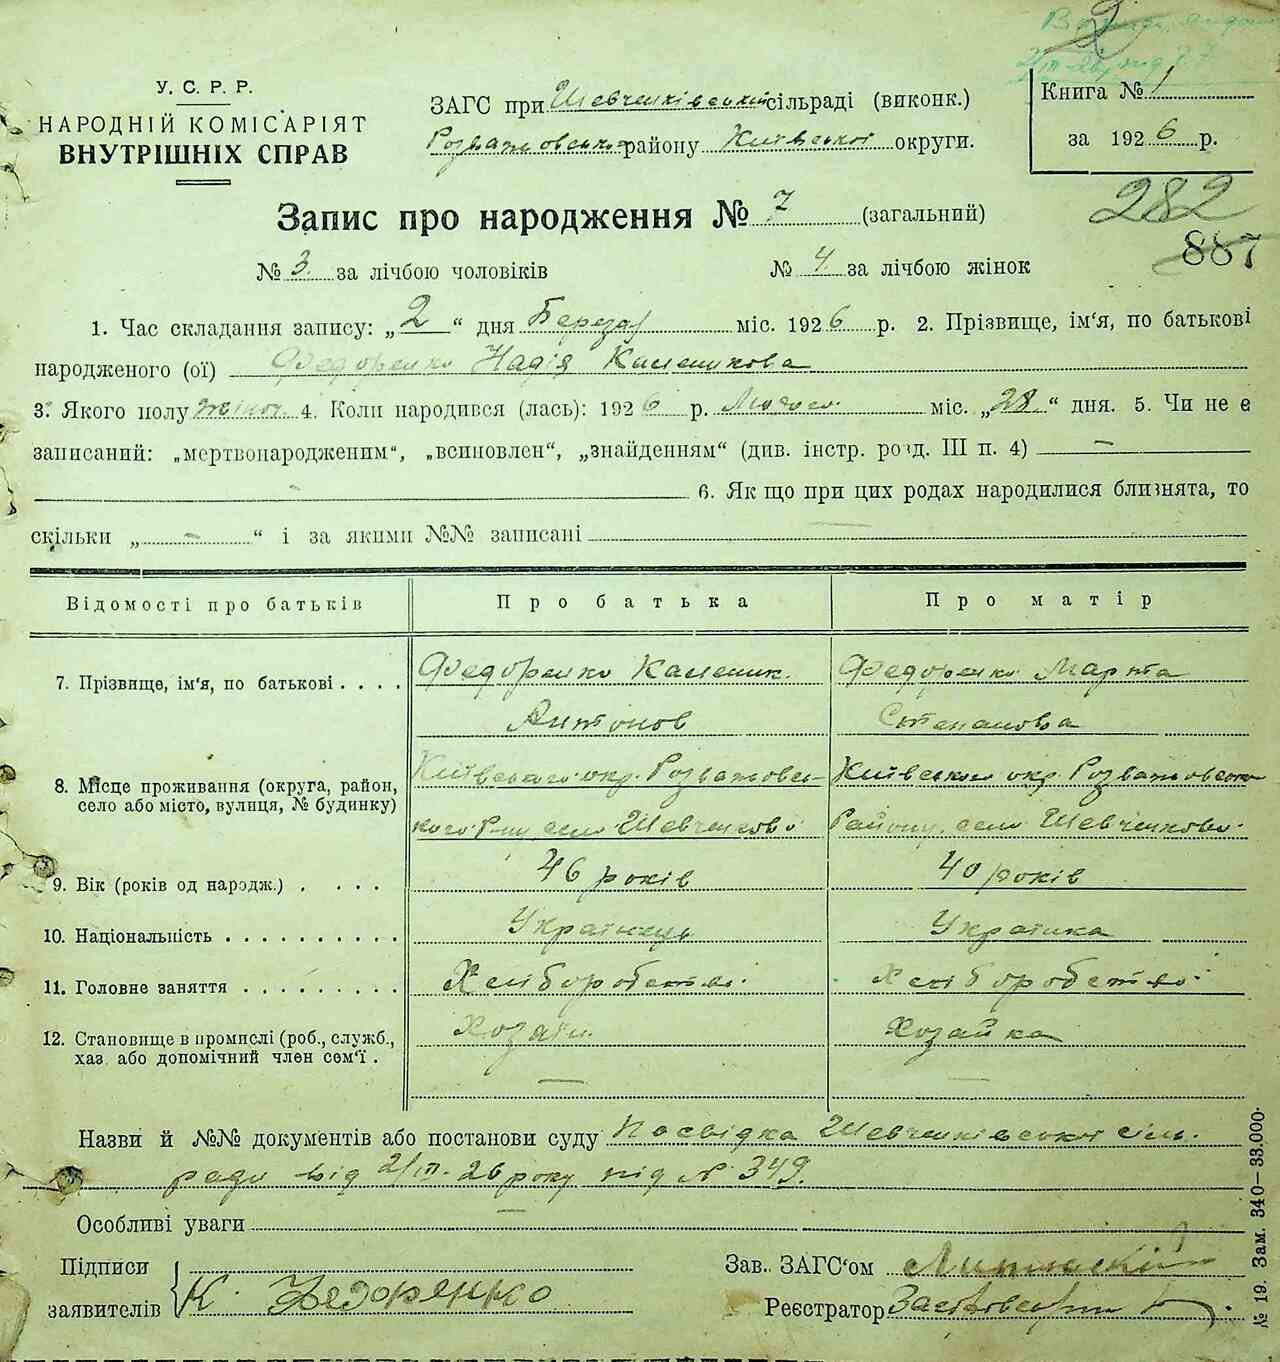 У. С. Р. Р.
НАРОДНІЙ КОМІСАРІЯТ
ВНУТРІШНІХ СПРАВ
ЗАГС при Шевченківській сільраді (виконк.)
Розважовського району Київської округи.
Книга № 1
за 1926 р.
282
887
Запис про народження № 7 (загальний)
№ 3. за лічбою чоловіків № 4 за лічбою жінок
1. Час складання запису: „2“ дня Березоля міс. 1926 р. 2. Прізвище, ім'я, по батькові
народженого (ої) Федоренко Надія Каленикова
3. Якого полу жіноч. 4. Коли народився (лась): 1926 р. Лютого міс. „28.“ дня. 5. Чи не є
записаний: „мертвонародженим“, „всиновлен“, „знайденням“ (див. інстр. розд. III п. 4) —
6. Як що при цих родах народилися близнята, то
скільки „ - “ і за якими №№ записані
Відомості про батьків Про батька Про матір
7. Прізвище, ім'я, по батькові . . . . Федоренко Каленик. Федоренко Марта
Антонов Степанова
8. Місце проживання (округа, район, Київського окр. Розважовсь- Київського окр. Розважовсько
село або місто, вулиця, № будинку) кого Р-ну село Шевченково Району, село Шевченково.
9. Вік (років од народж.) . . . . 46 років 40 років
10. Національність . . . . . . . . . . Українець Українка
11. Головне заняття . . . . . . . . . Хліборобство. Хліборобство.
12. Становище в промислі (роб., служб., Хозяїн. Хозайка
хаз. або допомічний член сем'ї .
Назви й №№ документів або постанови суду Посвідка Шевченківської сіль.
ради від 2/III-26 року під № 349.
Особливі уваги
Підписи
заявителів К. Федоренко
Зав. ЗАГС'ом
Реєстратор
№ 19. Зам. 340—33.000.